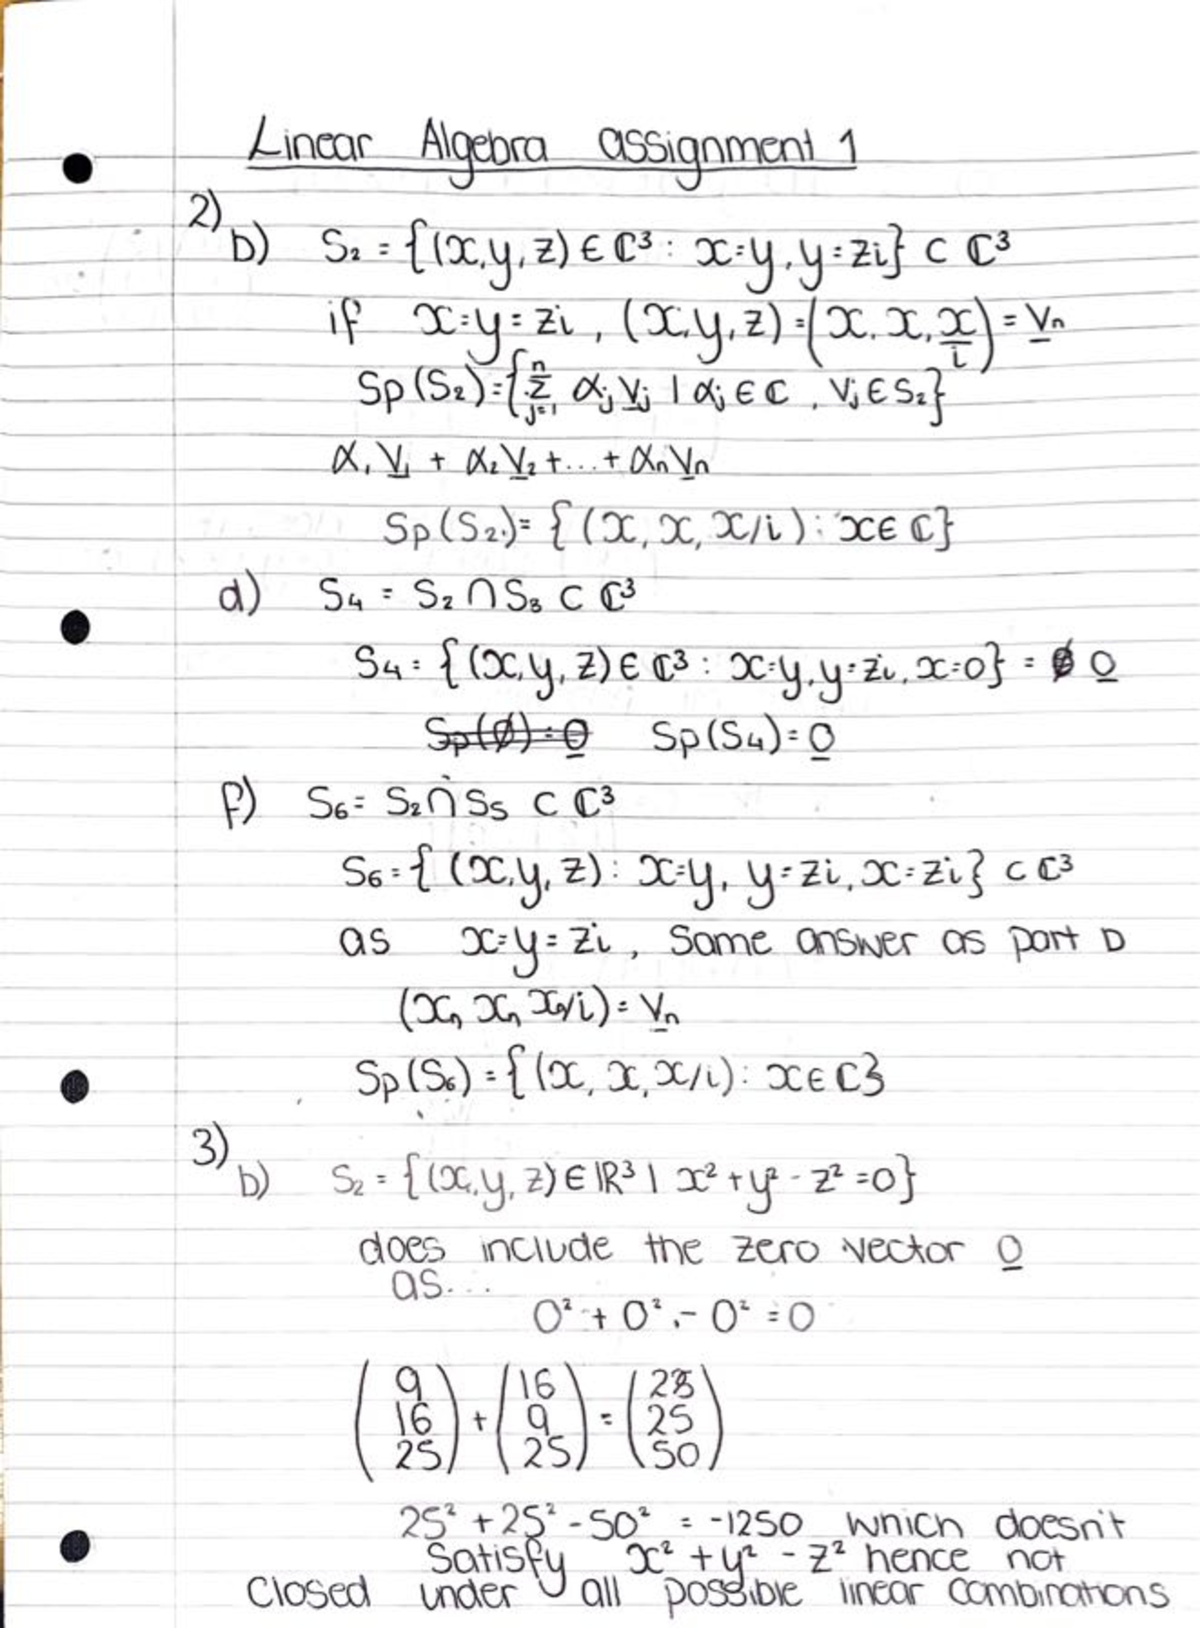 Linear Algebra assignment 1
2)
b) S₂ = {(x,y,z) ∈ ℂ³ : x=y, y=zi} ⊂ ℂ³
if x=y=zi, (x,y,z) = (x, x, x/i) = v̲ₙ
Sp(S₂) = {∑ⁿⱼ₌₁ αⱼ v̲ⱼ | αⱼ ∈ ℂ, Vⱼ ∈ S₂}
α₁v̲₁ + α₂v̲₂ + ... + αₙv̲ₙ
Sp(S₂) = {(x, x, x/i) : x ∈ ℂ}
d) S₄ = S₂ ∩ S₃ ⊂ ℂ³
S₄ = {(x,y,z) ∈ ℂ³ : x=y, y=zi, x=0} = ∅ 0̲
Sp(∅) = 0̲ Sp(S₄) = 0̲
f) S₆ = S₂ ∩ S₅ ⊂ ℂ³
S₆ = {(x,y,z) : x=y, y=zi, x=zi} ⊂ ℂ³
as x=y=zi, Same answer as part D
(xₙ, xₙ, xₙ/i) = v̲ₙ
Sp(S₆) = {(x, x, x/i) : x ∈ ℂ}
3)
b) S₂ = {(x,y,z) ∈ ℝ³ | x² + y² - z² = 0}
does include the zero vector 0̲
as...
0² + 0² - 0² = 0
(9 16 25) + (16 9 25) = (25 25 50)
25² + 25² - 50² = -1250 which doesn't
Satisfy x² + y² - z² hence not
Closed under all possible linear combinations